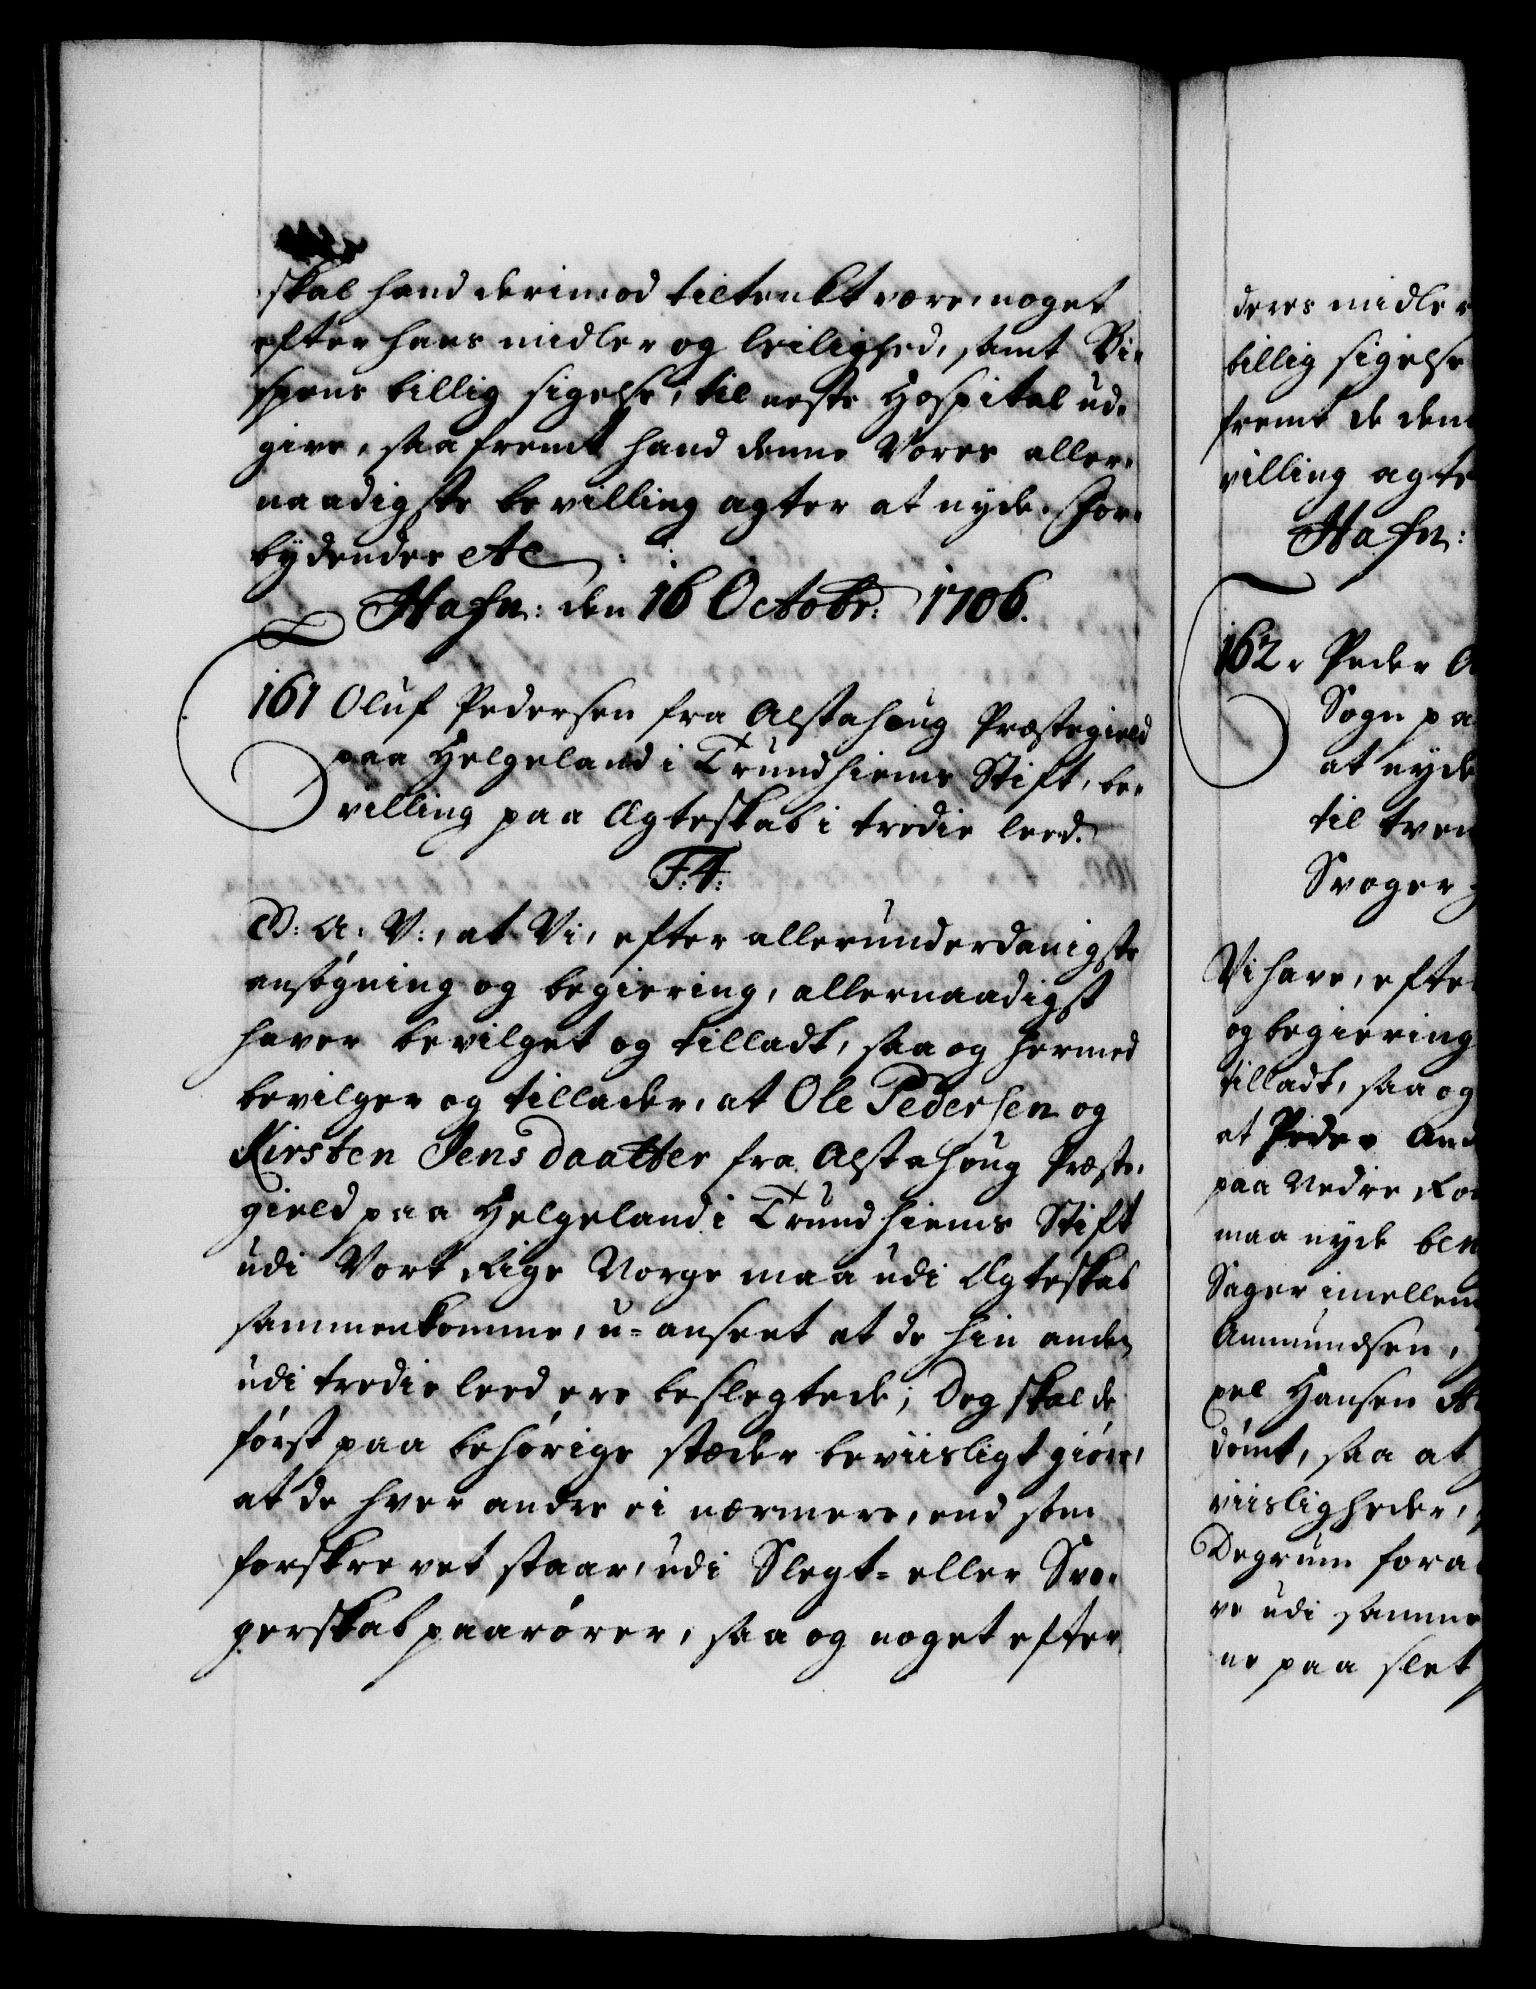 skal hand derimod tiltenkt være, noget
efter hans midler og leilighed, samt Bi-
spens billig sigelse, til neste Hospital ud-
give, saafremt hand denne Vores aller-
naadigste bevilling agter at nyde. For-
bydendes etc
Hafn: den 16 Octobr: 1706.
161 Oluf Pedersen fra Alstahoug Præstegield
paa Helgeland i Trundhiems Stift, be-
villing paa Ægteskab i tredie leed.
F: 4:
G: A: V:, at Vi, efter allerunderdanigste
ansøgning og begiering, allernaadigst
haver bevilget og tilladt, saa og hermed
bevilger og tillader, at Ole Pedersen og
Kirsten Jensdaatter fra Alstahoug Præste-
gield paa Helgeland i Trundhiems Stift
udi Vort Rige Norge maa udi Ægteskab
sammenkomme, u-anseet at de hin anden
udi tredie leed ere beslegtede; Dog skal de
først paa behørige stæder beviisligt giøre,
at de hver andre ei nærmere, end som
forskrevet staar, udi Slegt- eller Svo-
gerskab paarører, saa og noget efter
deres midler
billig sigelse
fremt de den
villing agte
Hafn:
162. Peder A
Sogn pa
at nyde
til tven
Svoger
Vi have, efte
og begiering
tilladt, saa og
at Peder And
paa Nedre Ro
maa nyde ben
Sager imellem
Ammundsen,
pel Hansen
dømt, saa at
viisligheder,
Degrum fora
ve udi samme
ne paa slet